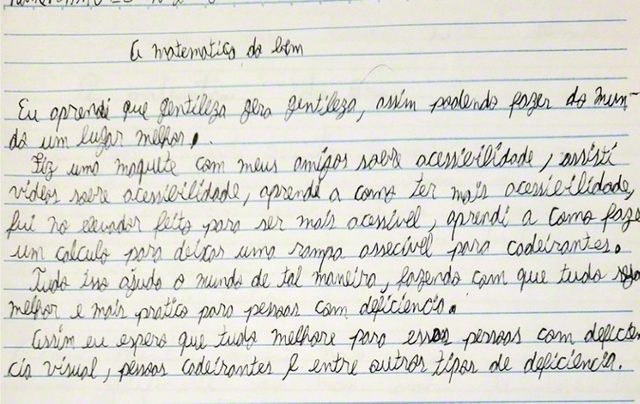 A matematica do bem
Eu aprendi que gentileza gera gentileza, assim podendo fazer do mun-
do um lugar melhor.
Fiz uma maquete com meus amigos sobre acessibilidade, assisti
vídeos sobre acessibilidade, aprendi a como ter mais acessibilidade,
fui no elevador feito para ser mais acessível, aprendi a como faze
um calculo para deixar uma rampa assecível para cadeirantes.
Tudo isso ajuda o mundo de tal maneira, fazendo com que tudo seja
melhor e mais pratico para pessoas com deficiencia.
Assim eu espero que tudo melhore para essas pessoas com deficien
cia visual, pessoas cadeirantes e entre outros tipos de deficiencia.